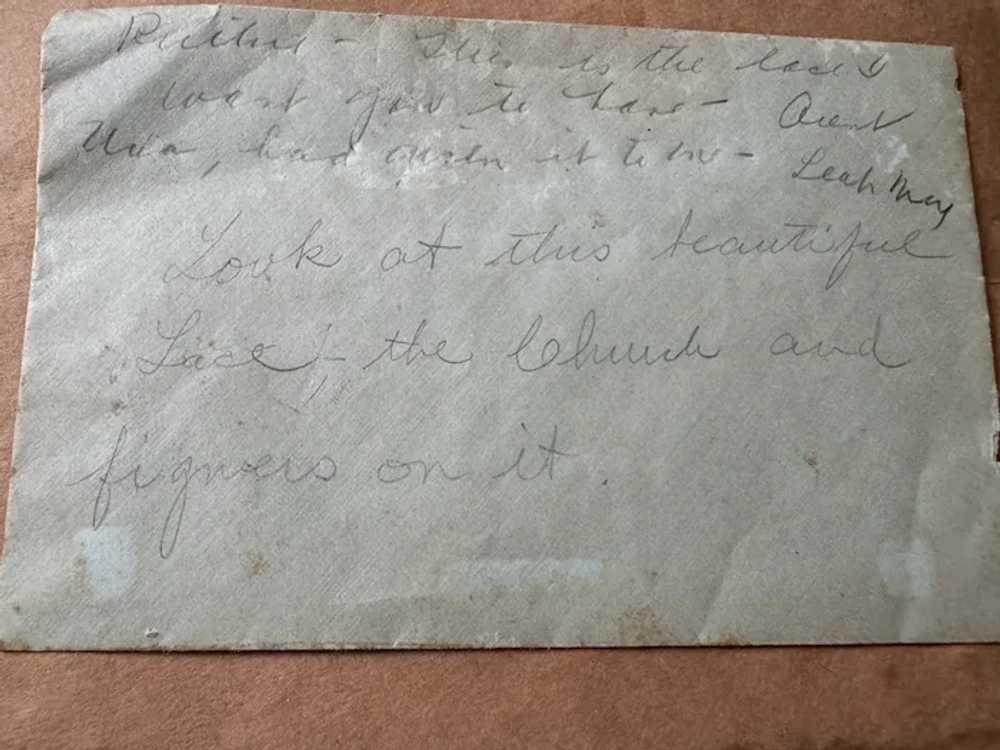 This is the lace I
want you to have - Aunt
had given it to me - Leah May
Look at this beautiful
Lace! - the Church and
figuers on it.